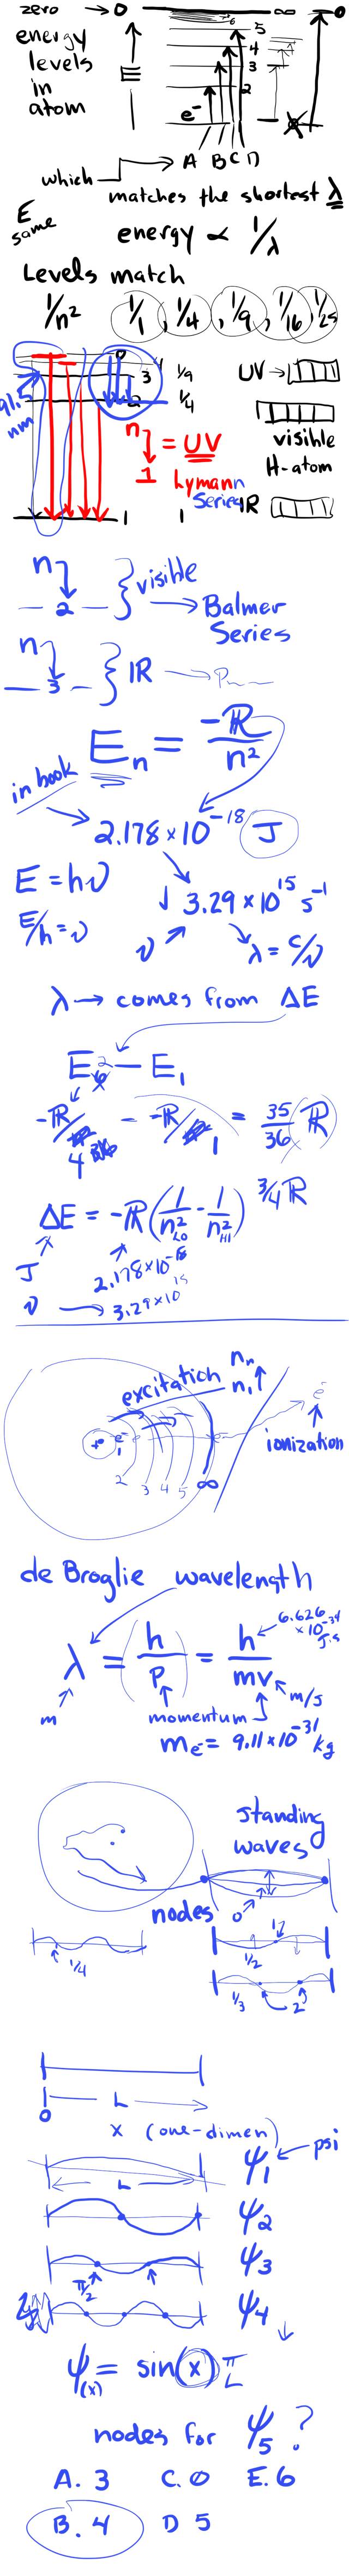 zero → 0 ∞ 0
energy levels in atom
6
5
4
3
2
e⁻
A B C D
which → matches the shortest λ
E same
energy ∝ 1/λ
Levels match
1/n² 1/1, 1/4, 1/9, 1/16, 1/25
0
3 1/9
2 1/4
1 1
91.5 nm
n ↓ 1 = UV
Lymann Series
UV →
visible
H-atom
IR
n ↓ 2 } visible → Balmer Series
n ↓ 3 } IR → P
E_n = -R/n²
in book → 2.178 × 10⁻¹⁸ J
E = hν
E/h = ν
↓ 3.29 × 10¹⁵ s⁻¹
ν λ = c/ν
λ → comes from ΔE
E₂ - E₁
-R/4 - -R/1 = 35/36 R
3/4 R
ΔE = -R(1/n²LO - 1/n²HI)
J 2.178 × 10⁻¹⁸
ν → 3.29 × 10¹⁵
excitation n_n ↑ n₁
e⁻
ionization
+ e⁻
1 2 3 4 5 ∞
de Broglie wavelength
λ = (h/p) = h/mv
6.626 × 10⁻³⁴ J·s
m
m/s
momentum
m_e⁻ = 9.11 × 10⁻³¹ kg
standing waves
nodes 0
1
1/4 1/2
1/3 2
0 L
x (one-dimen)
L ψ₁ ← psi
ψ₂
π/2 ψ₃
ψ₄
ψ(x) = sin(x) π/L
nodes for ψ₅ ?
A. 3 C. 0 E. 6
B. 4 D 5